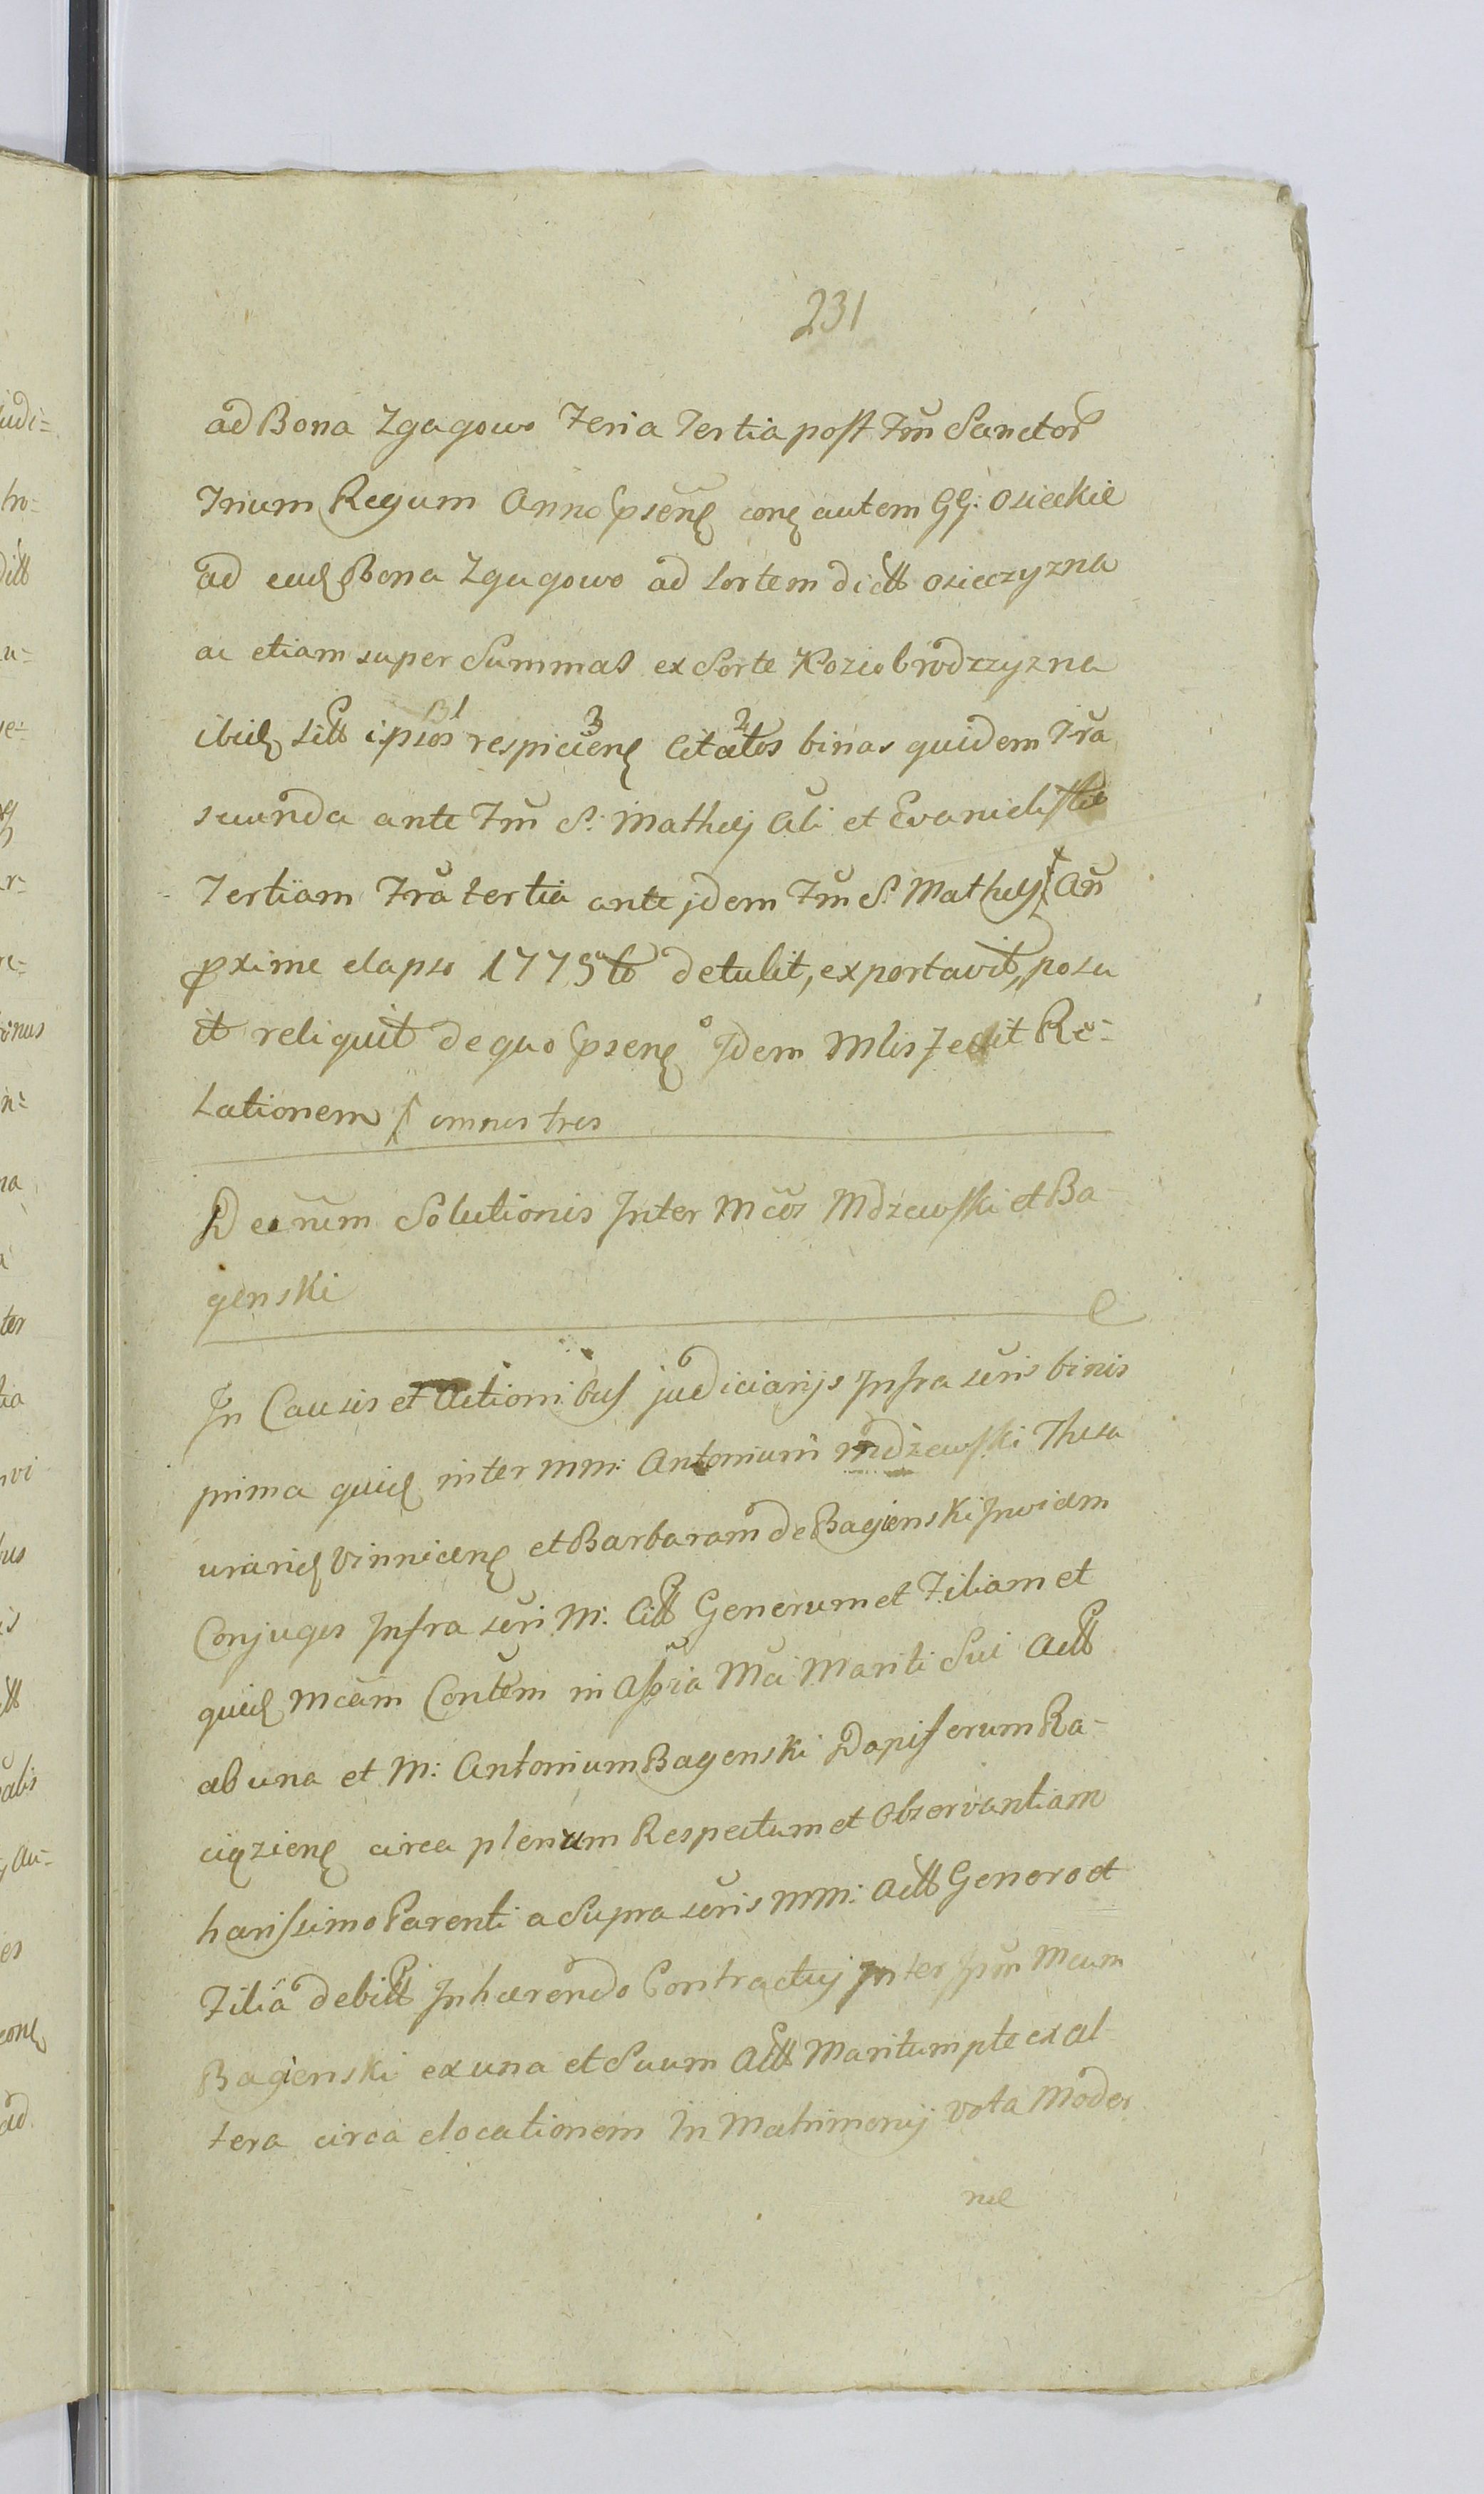 231
ad Bona Zgagowo Feria Tertia post Fm̃ Sanctor
Trium Regum Anno psenę conę autem GG: Osieckie
ad eadę Bona Zgagowo ad Sortem dictt Osieczyzna
ac etiam super Summas ex Sorte Koziobrodzzyzna
ibidę sitt ipsos respicienę Citatos binas quidem Fra
secunda ante Fm̃ S: Mathej Ali et Evanielistæ
Tertiam Fra tertia ante jdem Fm̃ S: Mathej An̄
pxime elapso 1775to detulit, exportavit, posu
it reliquit de quo psenę Idem Mlis Fecit Re-
lationem omnes tres
Decrum Solutionis Inter Mcos Mdzewski et Ba-
genski
In Causis et Actionibus judiciarijs Infra scris binis
prima quidę inter MM: Antonium Mdzewski Thesa
urarię Vinnicenę et Barbaram de Bagienski Invicem
Conjuges Infra scri M: Citt Generum et Filiam et
quidę Mcam Contem in Assia Mci Mariti Sui Actt
ab una et M: Antonium Bagenski Dapiferum Ra-
ciązienę circa plenum Respectum et Observantiam
harissimo Parenti a Supra scris MM: Actt Genero et
Filia debitt Inhærendo Contractuj Inter Ipm Mcum
Bagienski ex una et Suum Actt Maritum pte ex al-
tera circa elocationem In Matrimonij vota Moder
næ